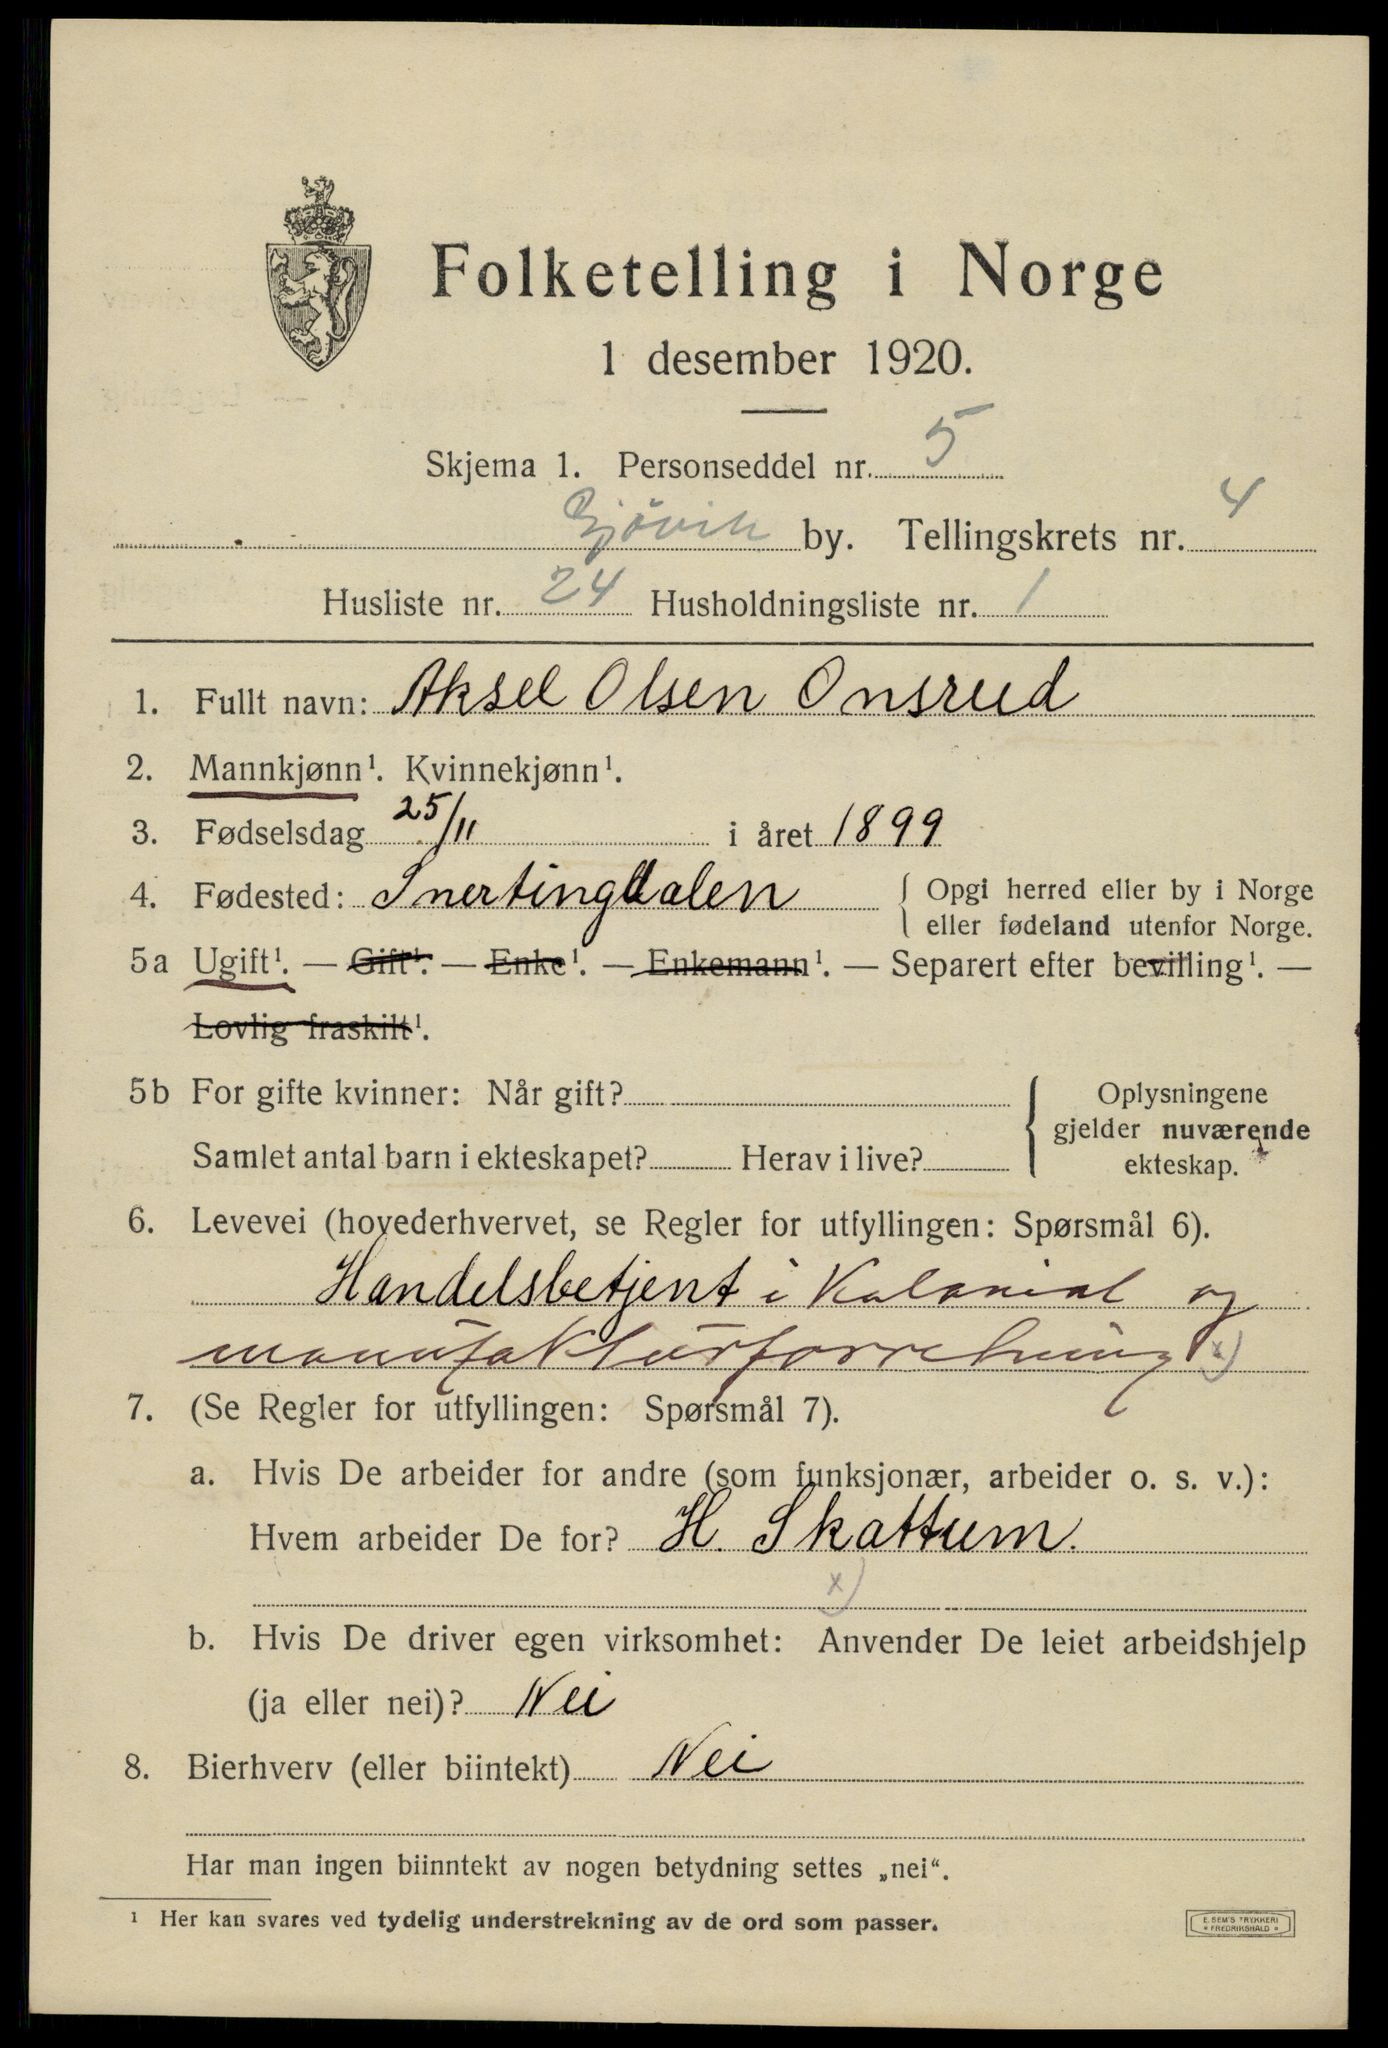 Folketelling i Norge
1 desember 1920.
Skjema 1. Personseddel nr. 5
Gjövik by. Tellingskrets nr. 4
Husliste nr. 24 Husholdningsliste nr. 1
1. Fullt navn: Aksel Olsen Onsrud
2. Mannkjønn¹. Kvinnekjønn¹.
3. Fødselsdag 25/11 i året 1899
4. Fødested: Snertingdalen { Opgi herred eller by i Norge
eller fødeland utenfor Norge.
5a Ugift¹. — Gift¹. — Enke¹. — Enkemann¹. — Separert efter bevilling¹. —
Lovlig fraskilt¹.
5b For gifte kvinner: Når gift? { Oplysningene
gjelder nuværende
Samlet antal barn i ekteskapet? Herav i live?
ekteskap.
6. Levevei (hovederhvervet, se Regler for utfyllingen: Spørsmål 6).
Handelsbetjent i Kolonial og
manufakturforretning x)
7. (Se Regler for utfyllingen: Spørsmål 7).
a. Hvis De arbeider for andre (som funksjonær, arbeider o. s. v.):
Hvem arbeider De for? H. Skattum.
x)
b. Hvis De driver egen virksomhet: Anvender De leiet arbeidshjelp
(ja eller nei)? Nei
8. Bierhverv (eller biintekt) Nei
Har man ingen biinntekt av nogen betydning settes „nei“.
¹ Her kan svares ved tydelig understrekning av de ord som passer.
E. SEM'S TRYKKERI
* FREDRIKSHALD *